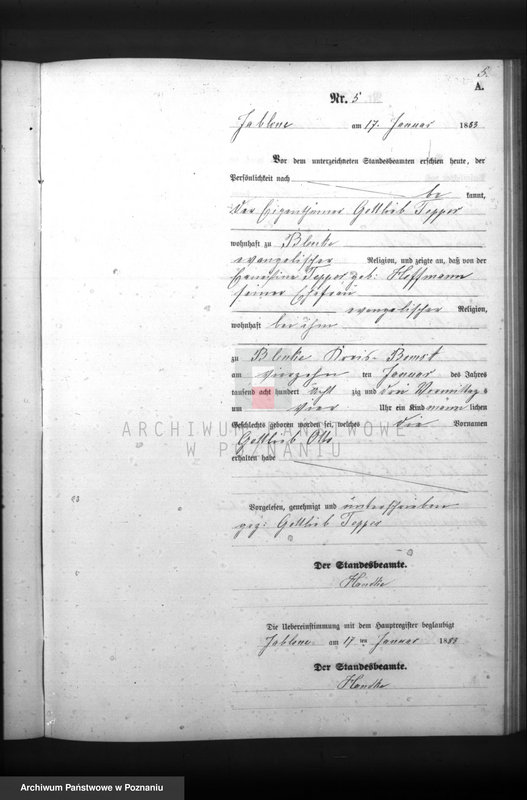 5.
A.
Nr. 5
Jablone am 17 Januar 1883
Vor dem unterzeichneten Standesbeamten erschien heute, der
Persönlichkeit nach
be kannt,
der Eigenthümer Gottlieb Tepper
wohnhaft zu Blenke
evangelischer Religion, und zeigte an, daß von der
Ernestine Tepper geb: Hoffmann
seiner Ehefrau
evangelischer Religion,
wohnhaft bei ihm
zu Blenke Kreis Bomst
am vierzehn ten Januar des Jahres
tausend acht hundert acht zig und drei Vormittags
um vier Uhr ein Kind männ lichen
Geschlechts geboren worden sei, welches die Vornamen
Gottlieb Otto
erhalten habe
ARCHIWUM PAŃSTWOWE
W POZNANIU
Vorgelesen, genehmigt und unterschrieben
gez: Gottlieb Tepper
Der Standesbeamte.
Handke
Die Uebereinstimmung mit dem Hauptregister beglaubigt
Jablone am 17 ten Januar 1883
Der Standesbeamte.
Handke
Archiwum Państwowe w Poznaniu